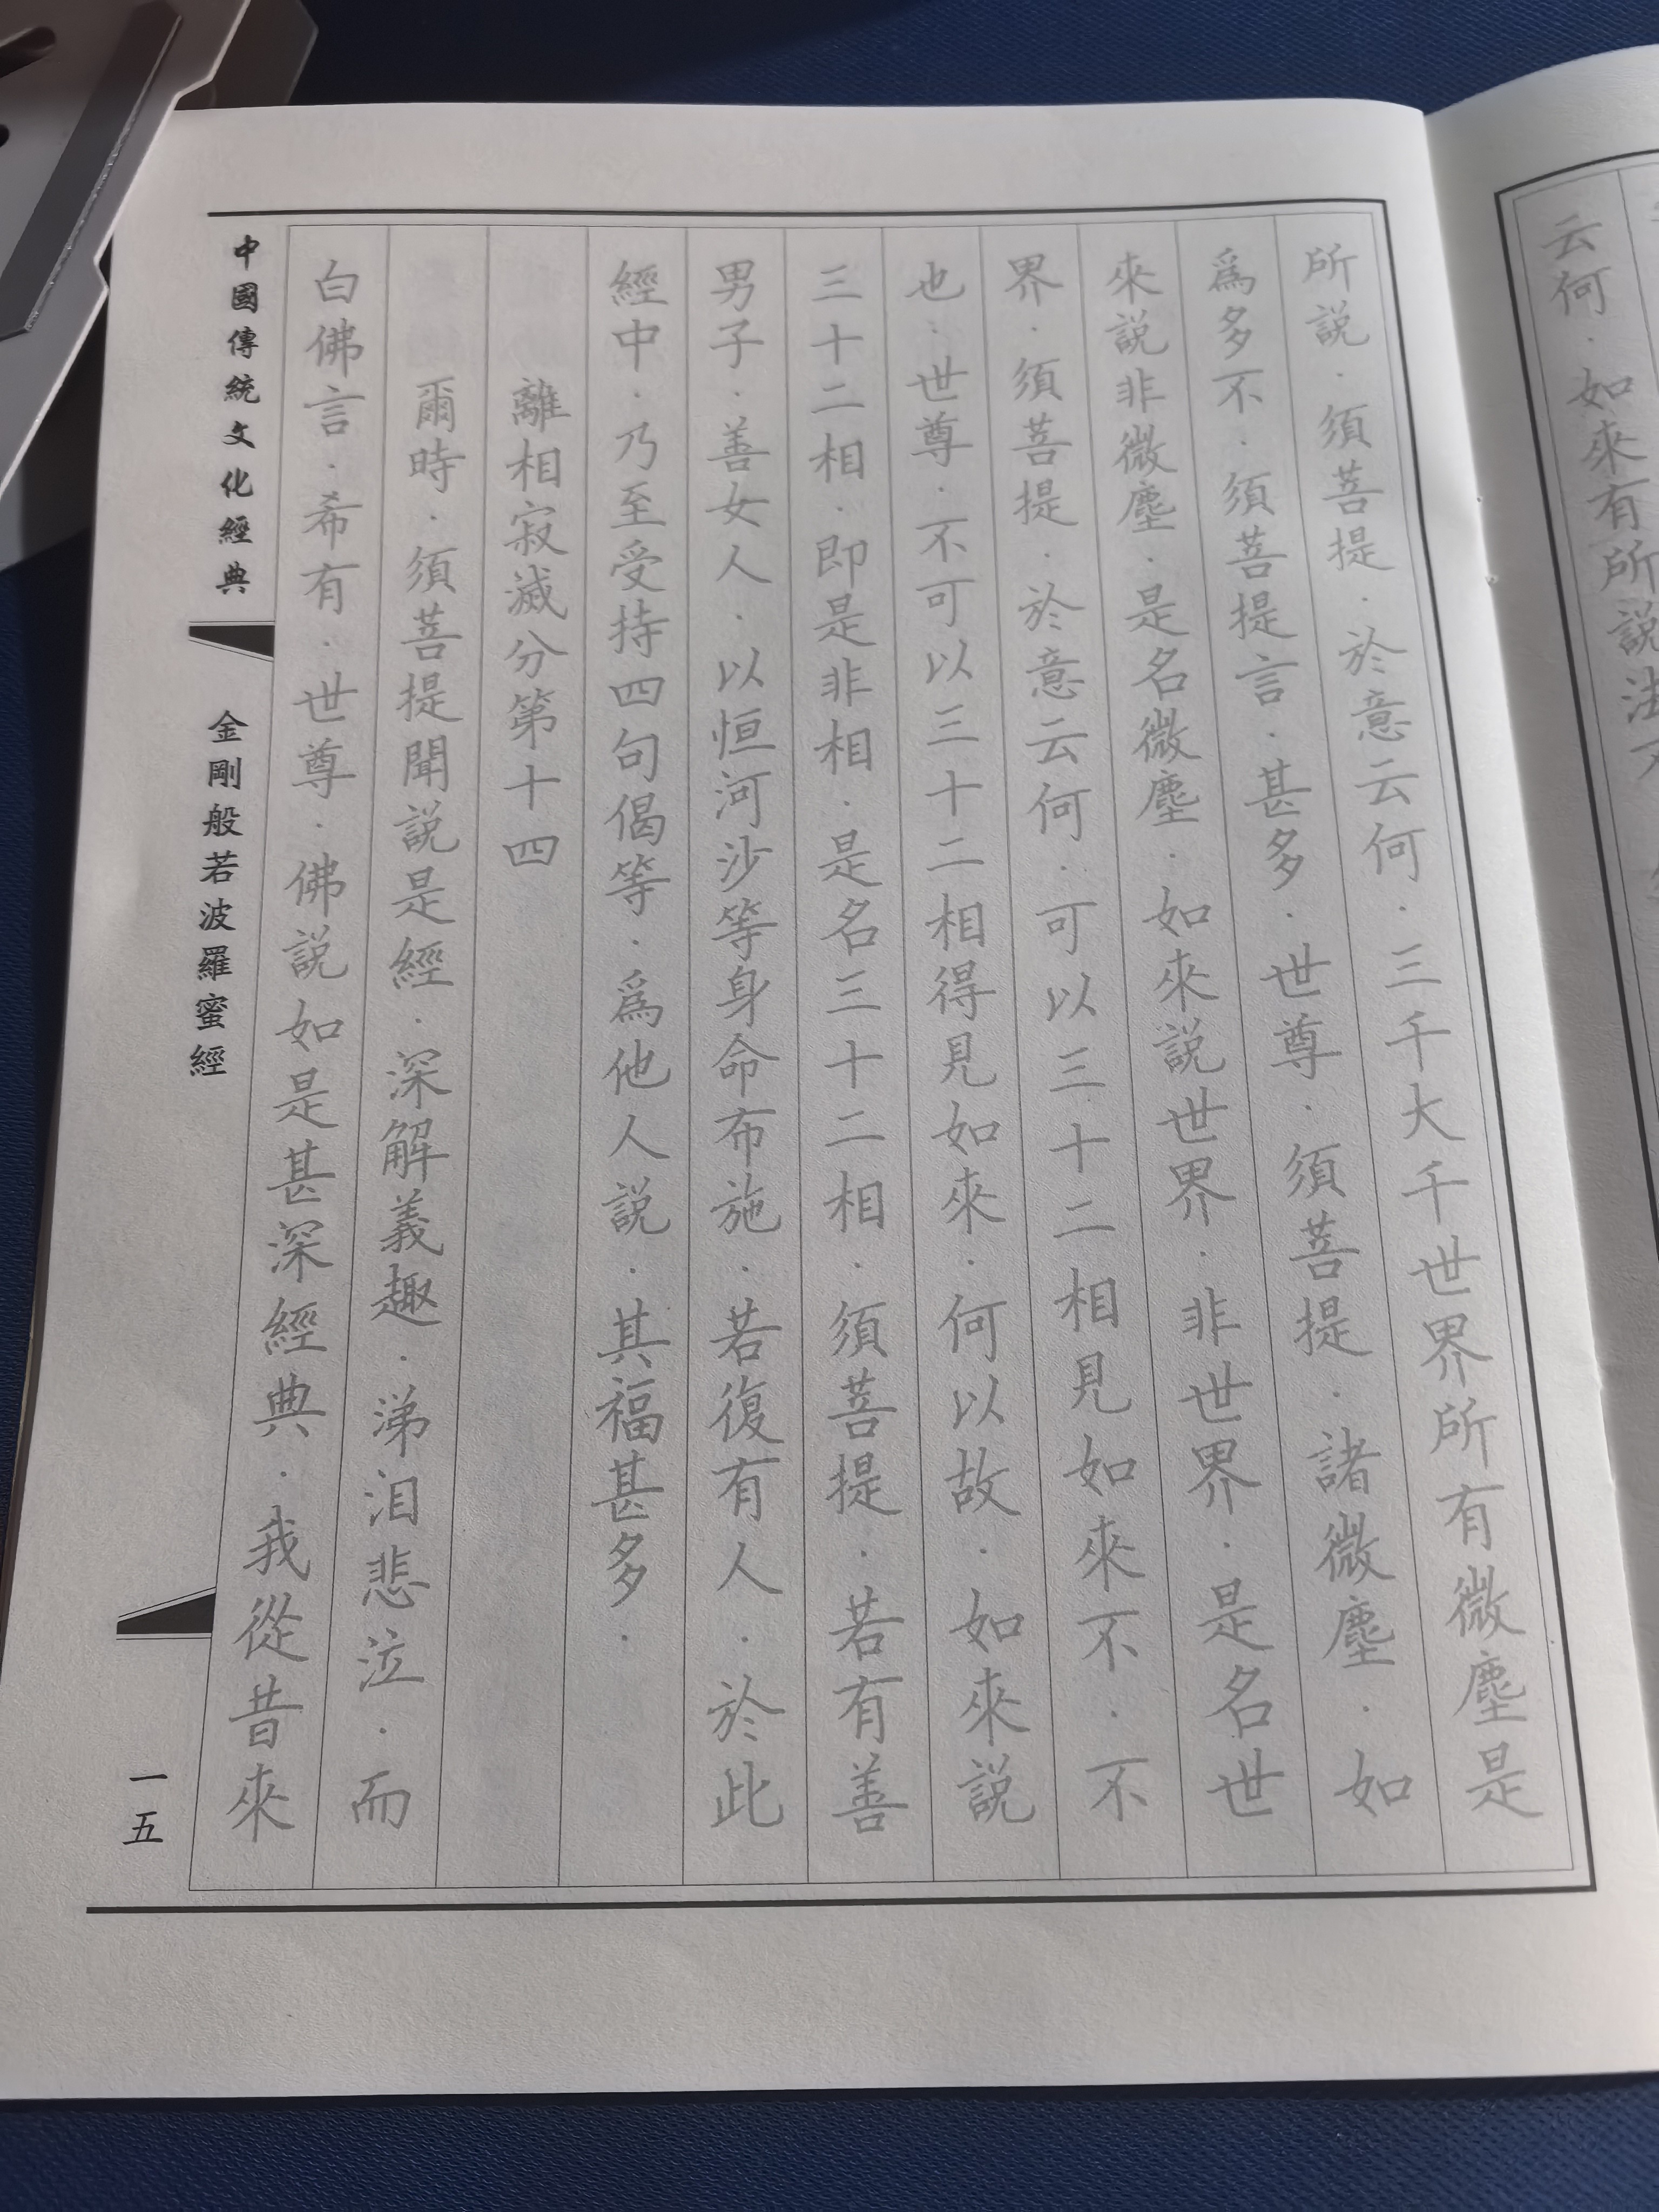 云何．如來有所說法不
所說．須菩提．於意云何．三千大千世界所有微塵是
爲多不．須菩提言．甚多．世尊．須菩提．諸微塵．如
來說非微塵．是名微塵．如來說世界．非世界．是名世
界．須菩提．於意云何．可以三十二相見如來不．不
也．世尊．不可以三十二相得見如來．何以故．如來說
三十二相．即是非相．是名三十二相．須菩提．若有善
男子．善女人．以恒河沙等身命布施．若復有人．於此
經中．乃至受持四句偈等．爲他人說．其福甚多．
離相寂滅分第十四
爾時．須菩提聞說是經．深解義趣．涕泪悲泣．而
白佛言．希有．世尊．佛說如是甚深經典．我從昔來
中國傳統文化經典
金剛般若波羅蜜經
一五